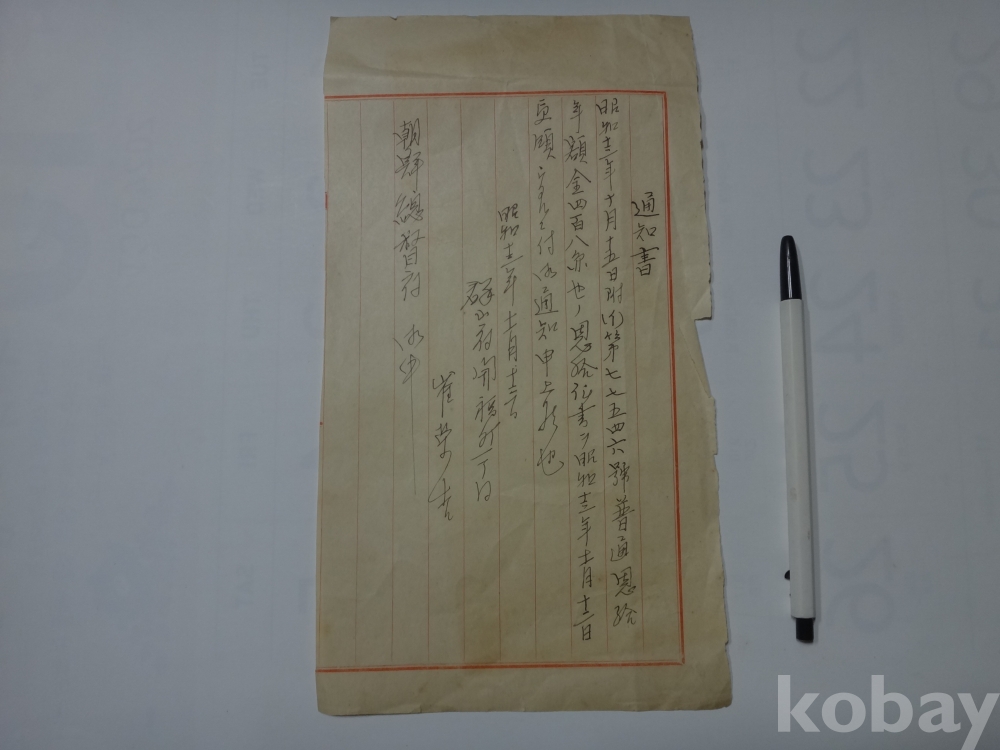 通知書
昭和十三年十月十五日附 第七七五四六號普通恩給
年額金四百八 也ノ恩給証書ヲ昭和十三年十一月十二日
受領 付 通知申上 也
昭和十三年十一月十二日
群山府開福町一丁目
崔
朝鮮總督府 御中
kobay